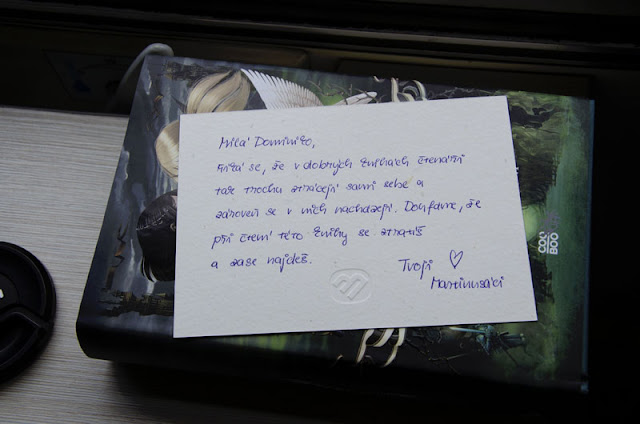 Milá Dominiko,
říká sa, že v dobrých knihách čtenáři
tak trochu ztrácejí sami sebe a
zároveň se v nich nacházejí. Doufáme, že
při čtení této knihy se ztratíš
a zase najdeš.
Tvoji ♡
Martinusáci
COO
BOO